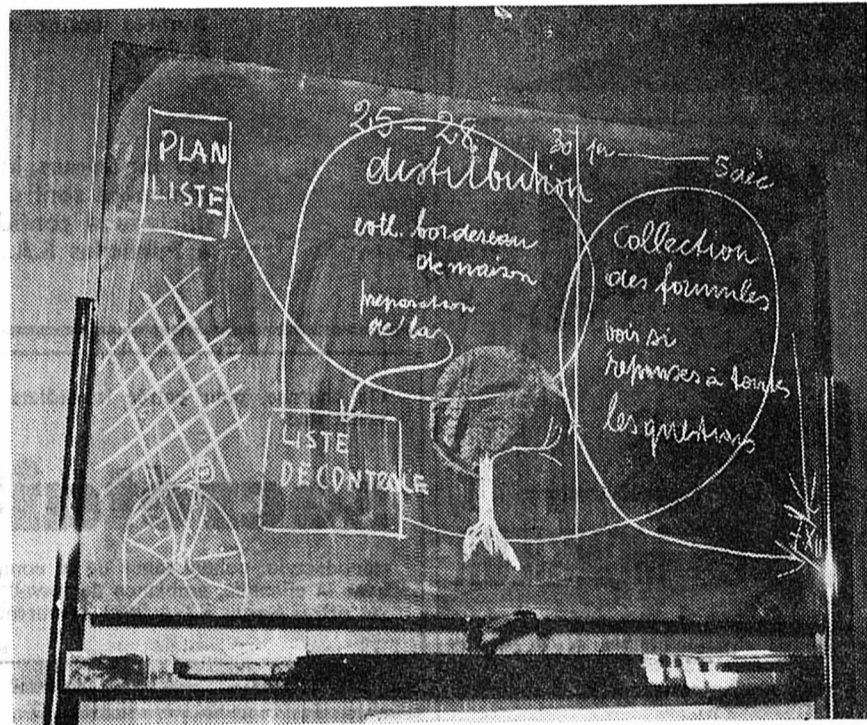 PLAN
LISTE
25-28
distribution
coll. bordereau
de maison
préparation
de la
LISTE
DE CONTROLE
30 1er 5 déc
Collection
des formules
voir si
réponses à toutes
les questions